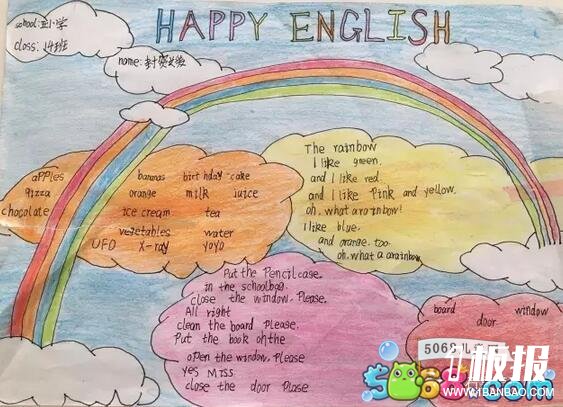 HAPPY ENGLISH
school:
class: 14班
name:
apples bananas birthday cake
pizza orange milk juice
chocolate ice cream tea
vegetables water
UFO X-ray yoyo
The rainbow
I like green,
and I like red.
and I like Pink and yellow.
oh, what a rainbow!
I like blue,
and orange. too.
oh. what a arainbow.
Put the Pencilcase.
in the schoolbag.
close the window. Please.
All right
clean the board Please.
Put the book on the
open the window. Please
yes Miss
close the door Please
board window
door
5068儿
板报
5068.com
WWW.1BANBAO.COM